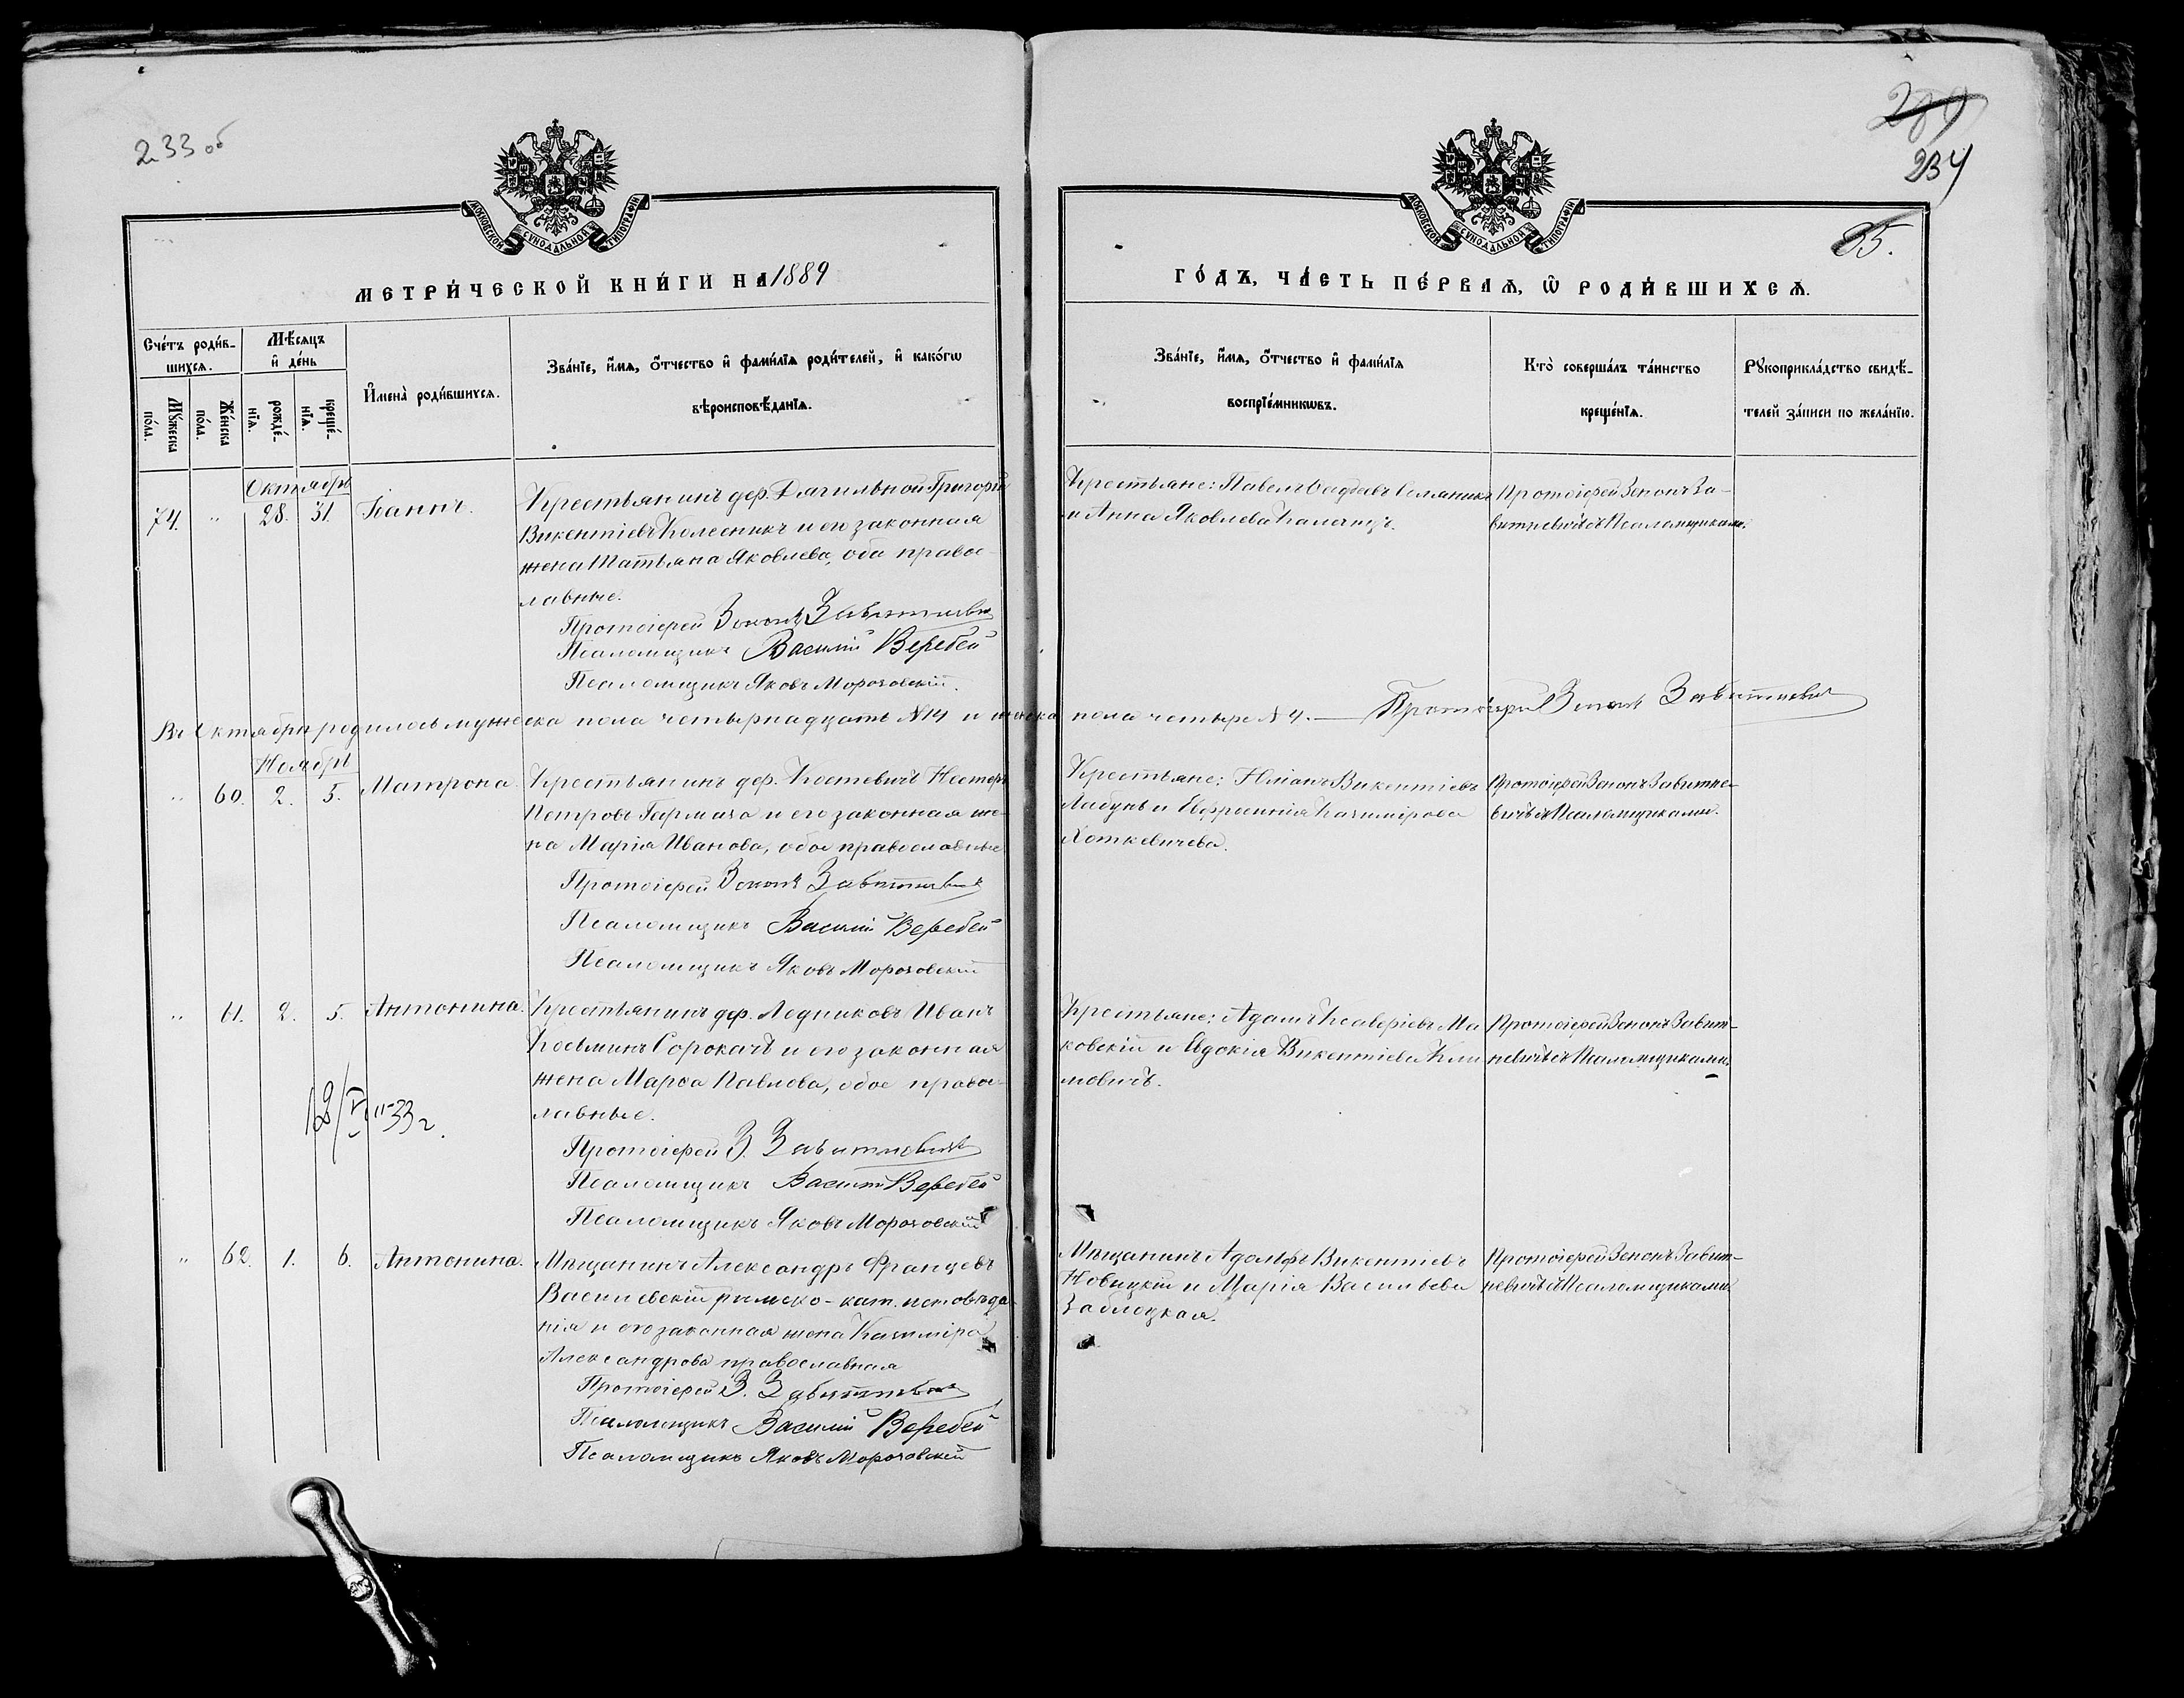 233 об
МОСКОВСКОЙ СѴНОДАЛЬНОЙ ТИПОГРАФІИ
МЕТРИ́ЧЕСКОЙ КНИ́ГИ НА 1889
Сче́тъ роди́в-
шихсѧ.
Мꙋ́жеска
по́ла.
Же́нска
по́ла.
Мѣ́сяцъ
и҆ де́нь
рожде́-
нїѧ.
креще́-
нїѧ.
И҆мена̀ роди́вшихсѧ.
Зва́нїе, и҆́мѧ, ѻ҆́тчество и҆ фами́лїѧ роди́телей, и҆ како́гѡ
вѣроисповѣ́данїѧ.
Октябрь
74. " 28. 31. Іоаннъ.
Крестьянинъ дер. Дягильной Григорій
Викентіевъ Колесникъ и его законная
жена Татьяна Яковлева, оба правос-
лавные.
Протоіерей Зенонъ Завитневичъ
Псаломщикъ Василій Веребей
Псаломщикъ Яковъ Морозовскій.
Въ Октябрѣ родилось мужеска пола четырнадцать №14 и женска пола четыре №4. — Протоіерей Зенонъ Завитневичъ
Ноябрь
" 60. 2. 5. Матрона.
Крестьянинъ дер. Костевичъ Нестеръ
Петровъ Гармаза и его законная же-
на Марія Иванова, обое православные
Протоіерей Зенонъ Завитневичъ
Псаломщикъ Василій Веребей
Псаломщикъ Яковъ Морозовскій
" 61. 2. 5. Антонина.
Крестьянинъ дер. Ледниковъ Иванъ
Косьминъ Сорокачъ и его законная
жена Марѳа Павлова, обое правос-
лавные.
33 г.
Протоіерей З. Завитневичъ
Псаломщикъ Василій Веребей
Псаломщикъ Яковъ Морозовскій
" 62. 1. 6. Антонина.
Мѣщанинъ Александръ Францевъ
Василевскій римско-кат. исповѣда-
нія и его законная жена Казиміра
Александрова православная
Протоіерей З. Завитневичъ
Псаломщикъ Василій Веребей
Псаломщикъ Яковъ Морозовскій
234
85.
МОСКОВСКОЙ СѴНОДАЛЬНОЙ ТИПОГРАФІИ
ГО́ДЪ, ЧА́СТЬ ПЕ́РВАѦ, Ѡ҆ РОДИ́ВШИХСѦ.
Зва́нїе, и҆́мѧ, ѻ҆́тчество и҆ фами́лїѧ
воспрїе́мникѡвъ.
Кто̀ соверша́лъ та́инство
креще́нїѧ.
Рꙋкоприкла́дство свидѣ́-
телей за́писи по жела́нїю.
Крестьяне: Павелъ Ѳадѣевъ Семяникъ
и Анна Яковлева
Протоіерей Зенонъ За-
витневичъ съ Псаломщиками.
Крестьяне: Юліанъ Викентіевъ
Лабунь и Евфросинія Казимірова
Хоткевичева.
Протоіерей Зенонъ Завитне-
вичъ съ Псаломщиками.
Крестьяне: Адамъ Ксаверіевъ Ма
ковскій и Евдокія Викентіева Кли
мовичъ.
Протоіерей Зенонъ Завит-
невичъ съ Псаломщиками.
Мѣщанинъ Адольфъ Викентіевъ
Новицкій и Марія Васильева
Заблоцкая.
Протоіерей Зенонъ Завит-
невичъ съ Псаломщиками.